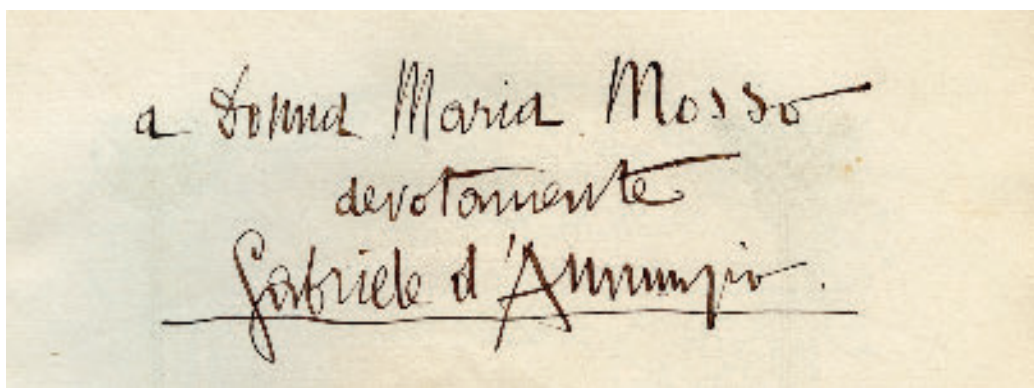 a Donna Maria Mosso
devotamente
Gabriele d'Annunzio.